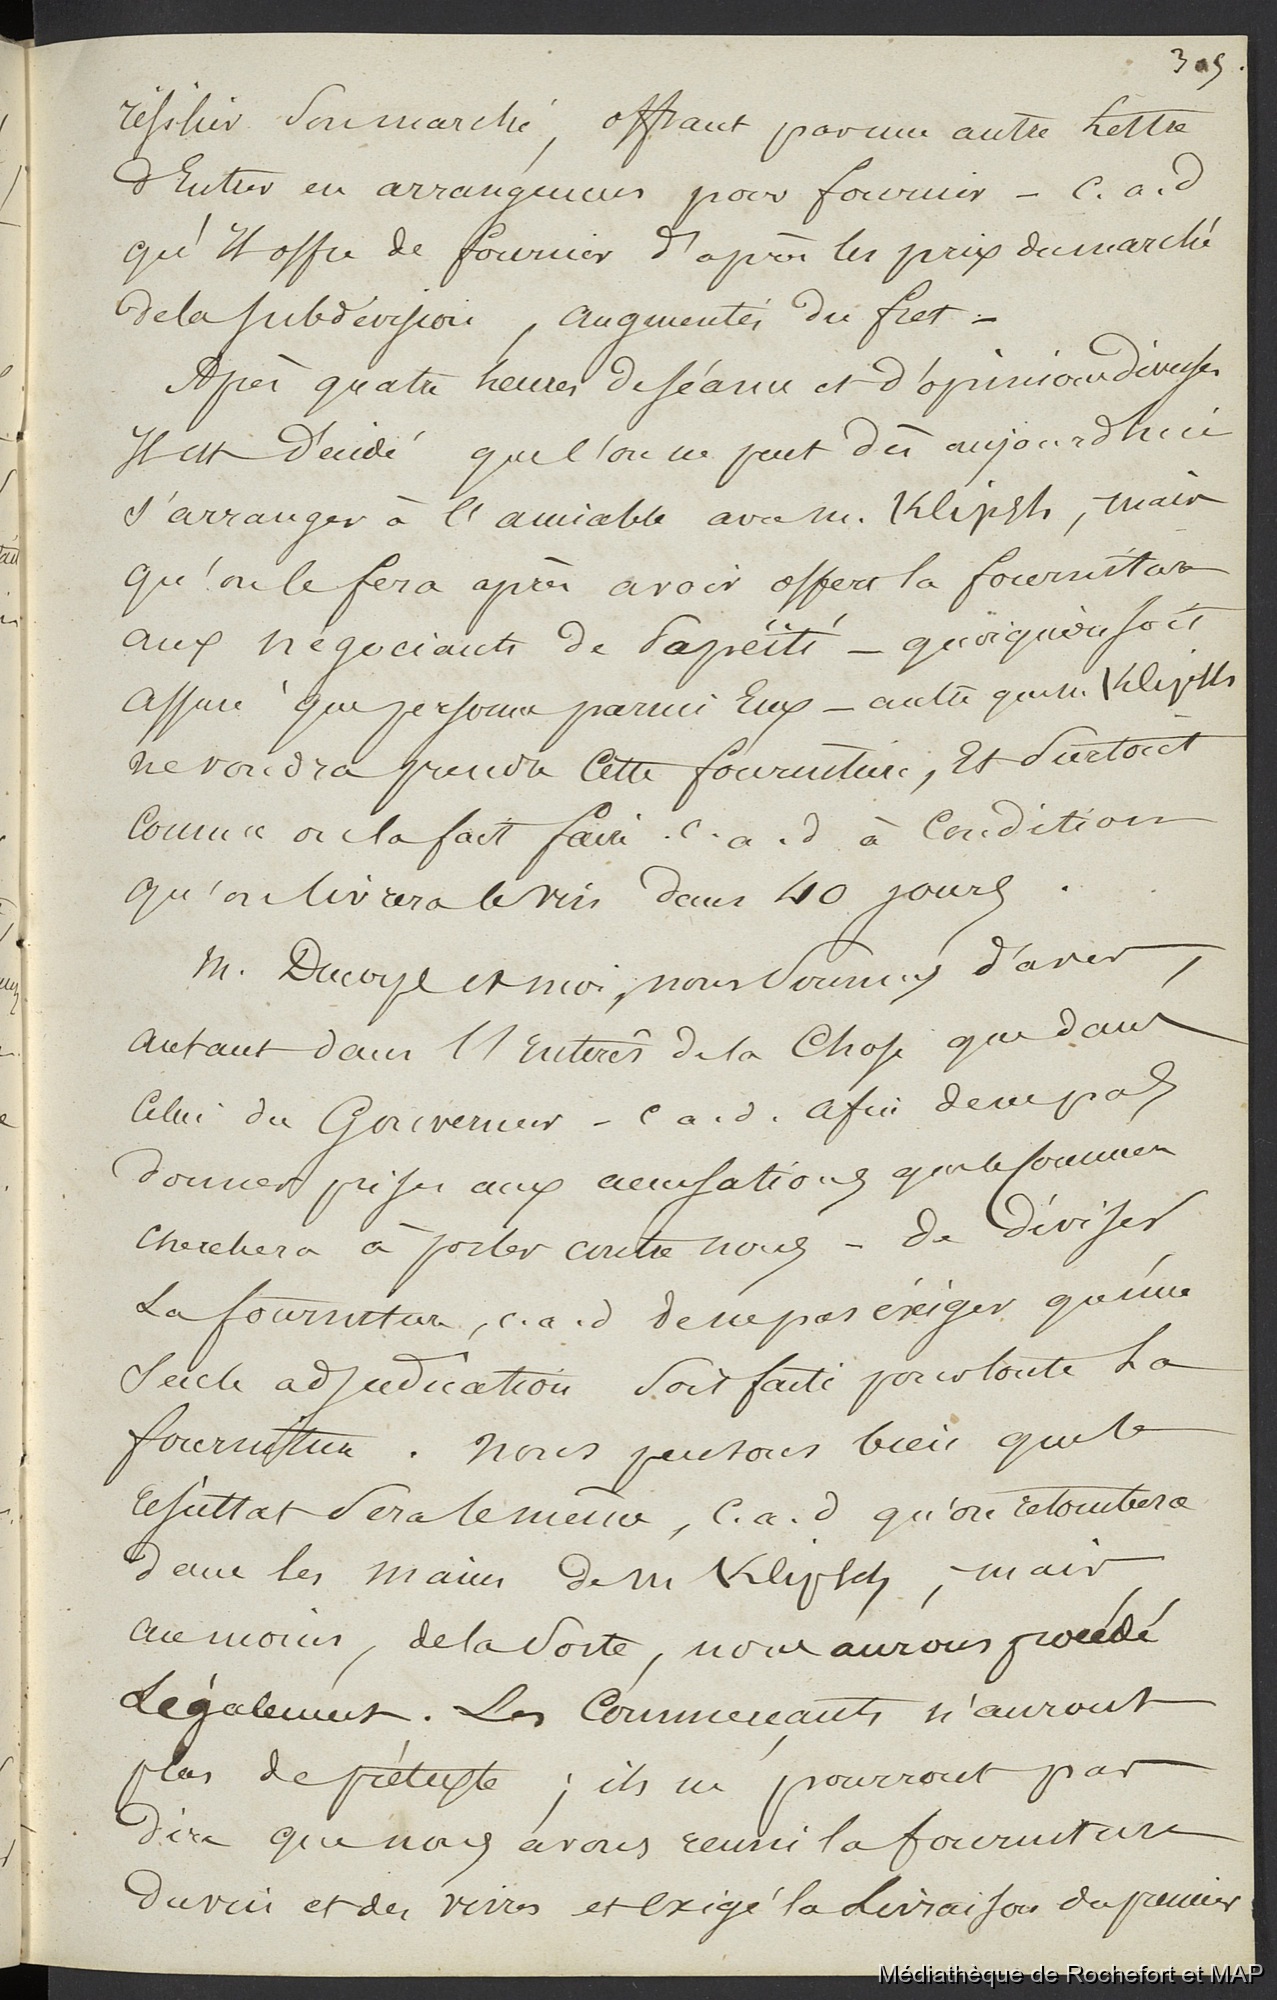 305.
résilier son marché, offrant par une autre Lettre
d'Entrer en arrangemens pour fournir – c. a. d
qu'Il offre de fournir d'après les prix du marché
de la subdévision, augmentés du fret =
Après quatre heures de séance et d'opinions diverses
Il est décidé que l'on ne peut dès aujourdhui
s'arranger à l'amiable avec m. Klipfsh, mais
qu'on le fera après avoir offert la fourniture
aux négociants de Papéïti – quoiqu'on soit
assuré que personne parmi Eux – autre que m. Klipfsh
ne voudra prendre Cette fourniture, Et surtout
Comme on la fait faire. c. a. d à Condition
qu'on livrera le vin dans 40 jours.
M. et moi, nous sommes d'avis,
autant dans l'Enterêt de la Chose que dans
Celui du Gouverneur – c a. d. afin de ne pas
donner prise aux accusations que le commerce
cherchera à porter contre nous – de diviser
La fourniture, c. a. d de ne pas éxiger qu'une
seule adjudication soit faite pour toute La
fourniture. Nous pensons bien que le
résultat sera le même, c. a. d qu'on retombera
dans les mains de m Klipfsh, mais
au moins, de la sorte, nous aurons procédé
Légalement. Les Commerçants n'auront
plus de prétexte; ils ne pourront pas
dire que nous avons reuni la fourniture
du vin et des vivres et exigé la Livraison du premier
Médiathèque de Rochefort et MAP